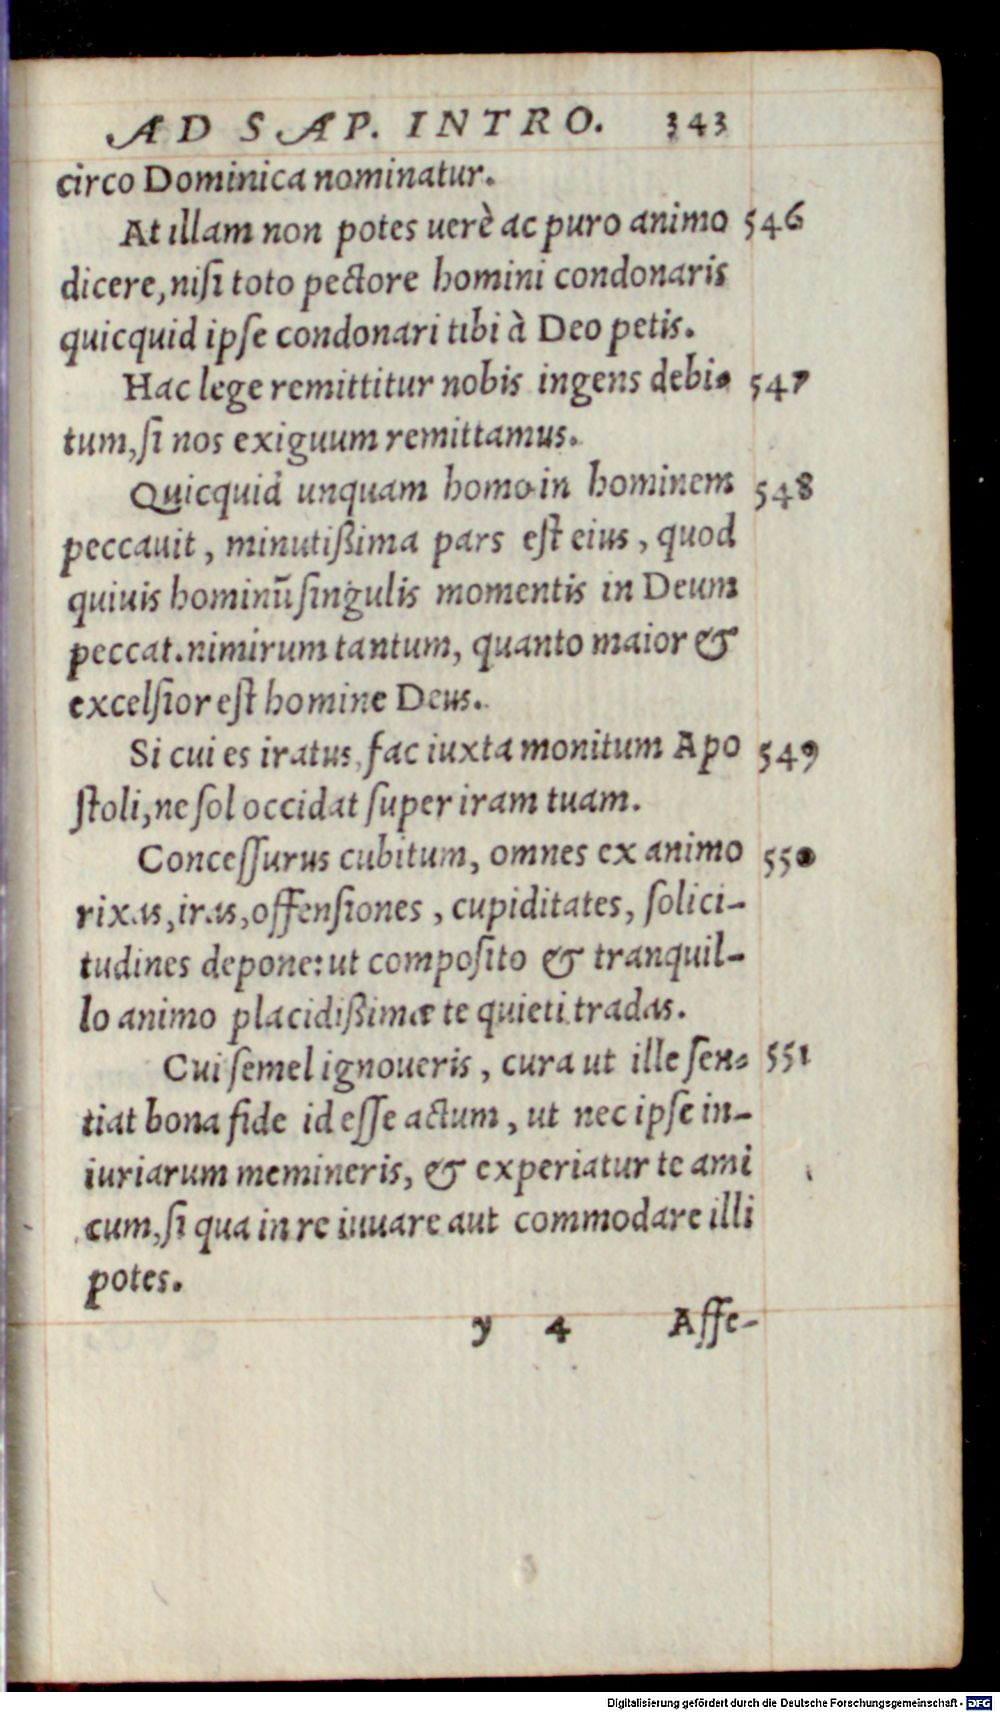 AD SAP. INTRO. 343
circo Dominica nominatur.
At illam non potes uerè ac puro animo 546
dicere, niſi toto pectore homini condonaris
quicquid ipſe condonari tibi à Deo petis.
Hac lege remittitur nobis ingens debi- 547
tum, ſi nos exiguum remittamus.
Quicquid unquam homo in hominem 548
peccauit, minutißima pars eſt eius, quod
quiuis hominũ ſingulis momentis in Deum
peccat. nimirum tantum, quanto maior &
excelſior eſt homine Deus.
Si cui es iratus, fac iuxta monitum Apo 549
ſtoli, ne ſol occidat ſuper iram tuam.
Conceſſurus cubitum, omnes ex animo 550
rixas, iras, offenſiones, cupiditates, ſolici-
tudines depone: ut compoſito & tranquil-
lo animo placidißimæ te quieti tradas.
Cui ſemel ignoueris, cura ut ille ſen- 551
tiat bona fide id eſſe actum, ut nec ipſe in-
iuriarum memineris, & experiatur te ami
cum, ſi qua in re iuuare aut commodare illi
potes.
y 4 Affe-
Digitalisierung gefördert durch die Deutsche Forschungsgemeinschaft - DFG